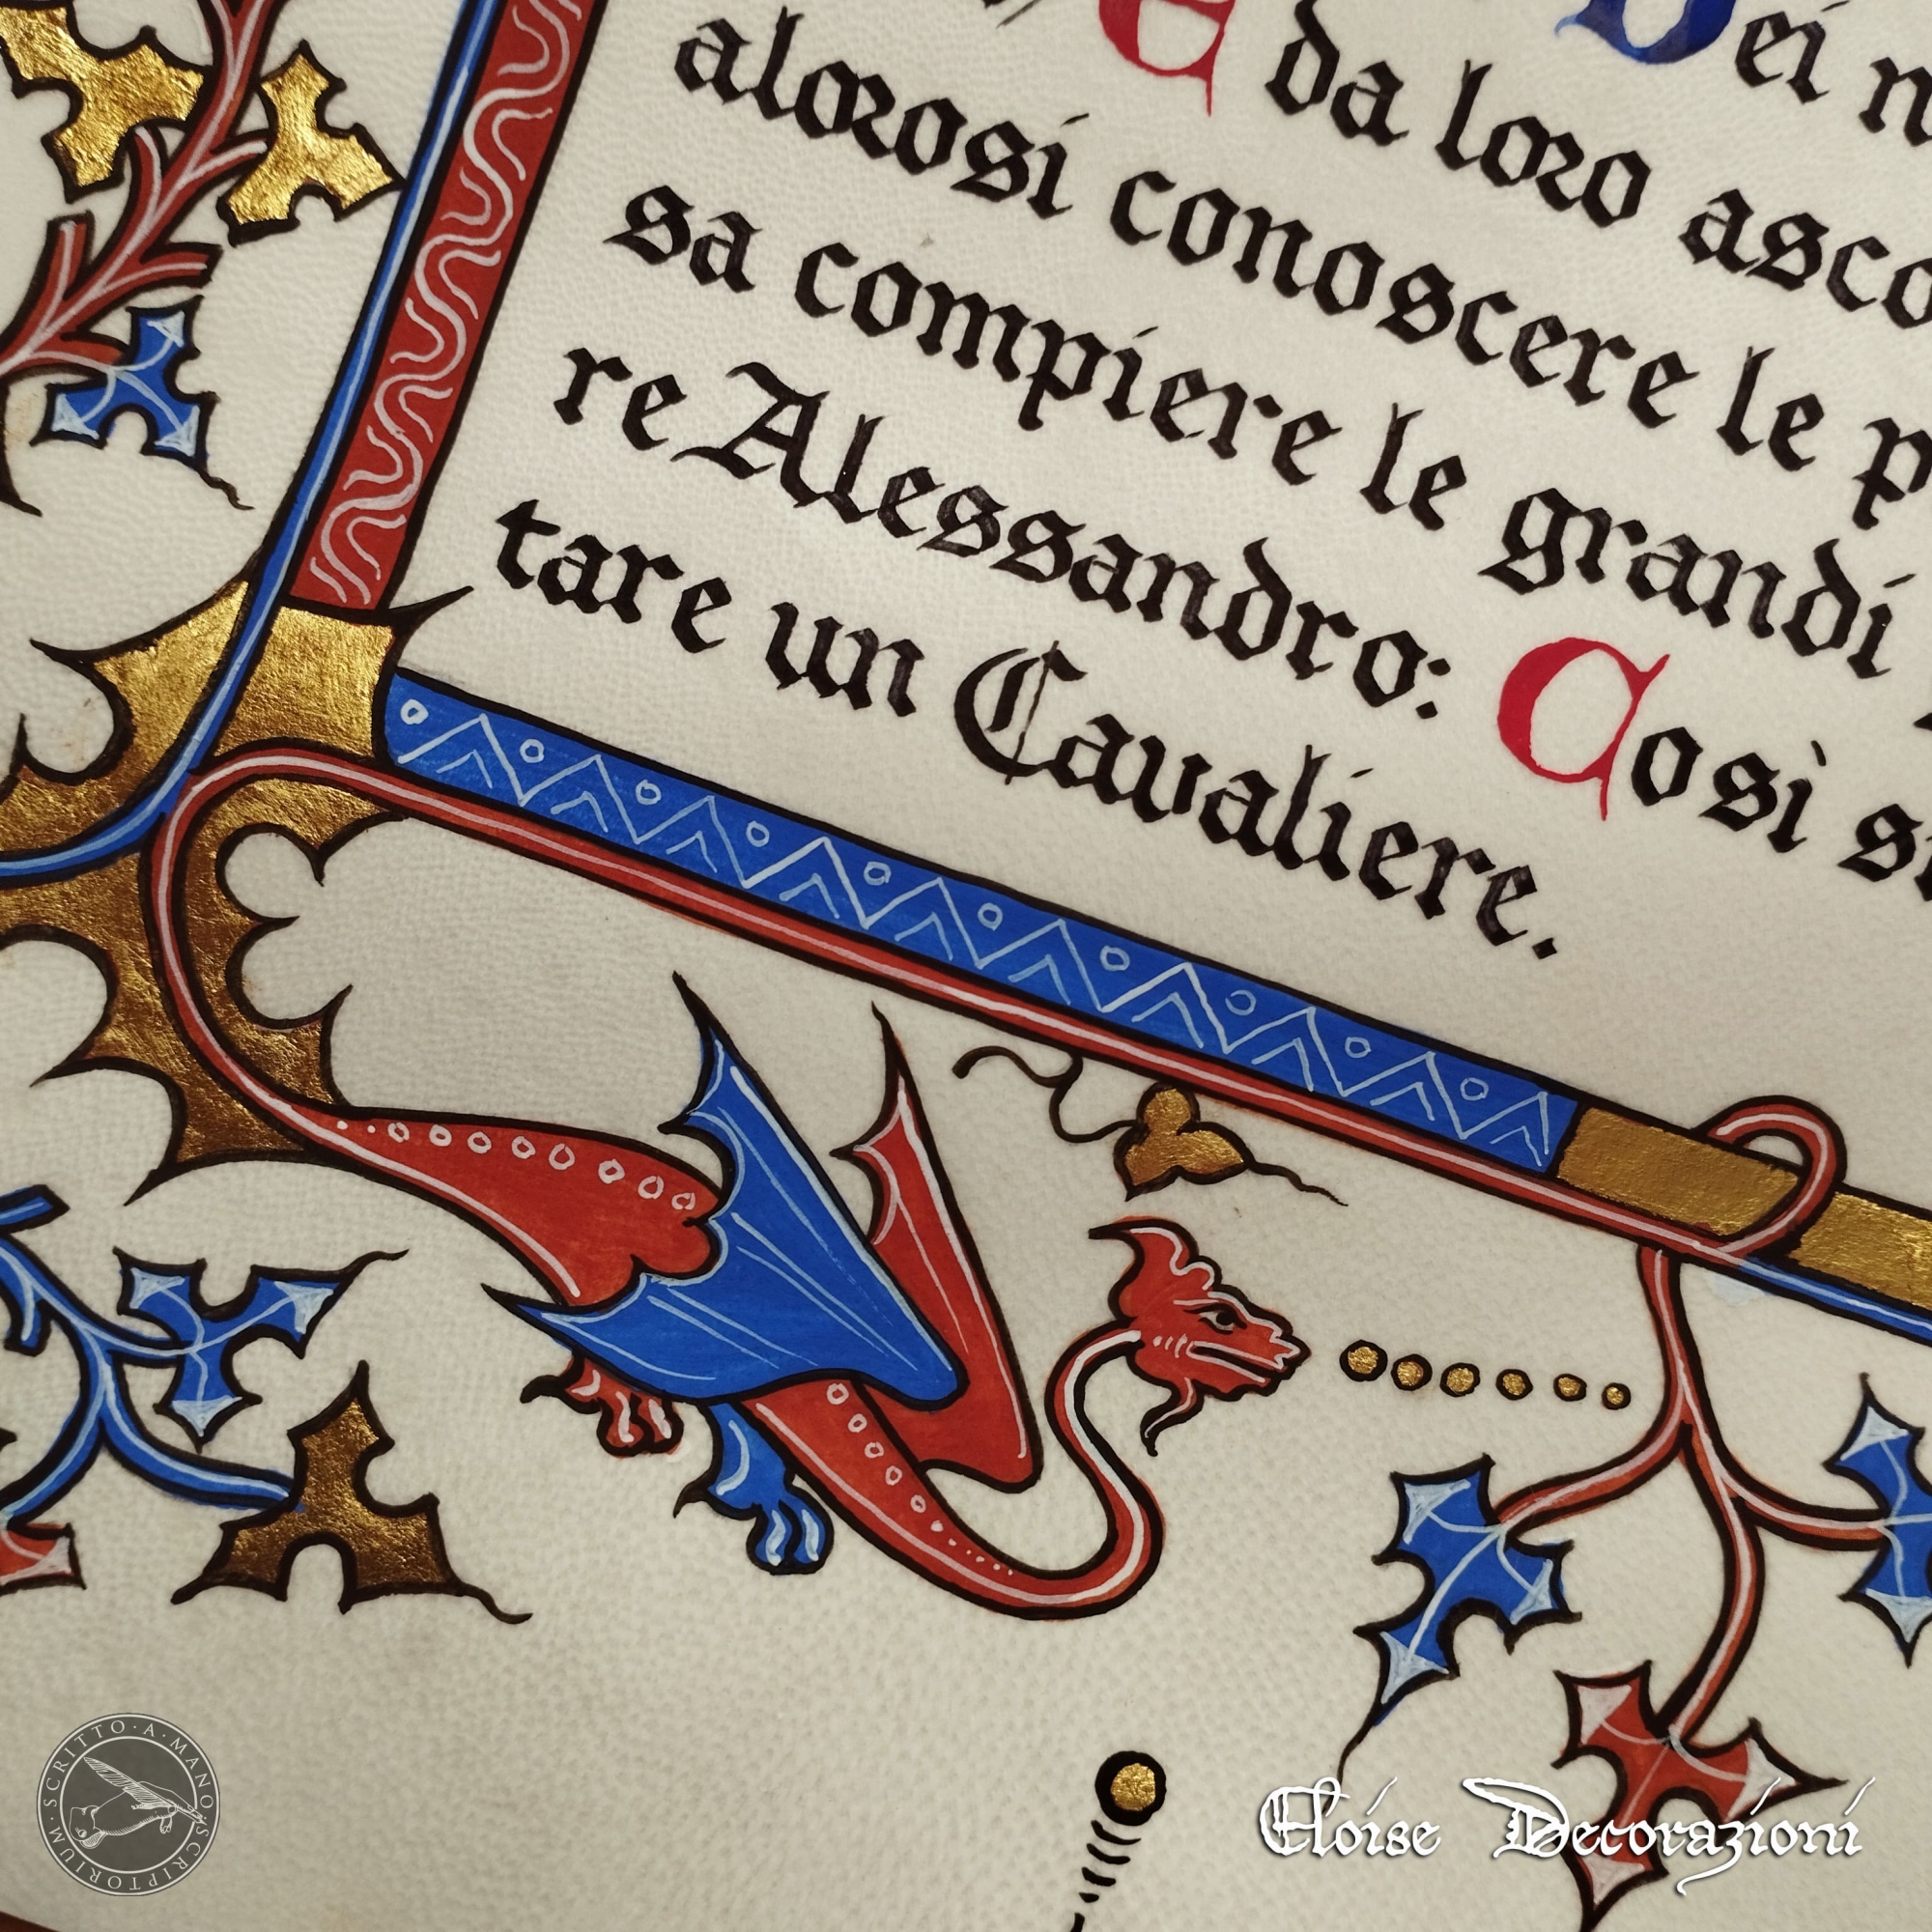 E da loro asco
Dei
alorosi conoscere le p
sa compiere le grandi
re Alessandro: Così s
tare un Cavaliere.
SCRITTO · A · MANO · SCRIPTORIUM ·
Eloise Decorazioni